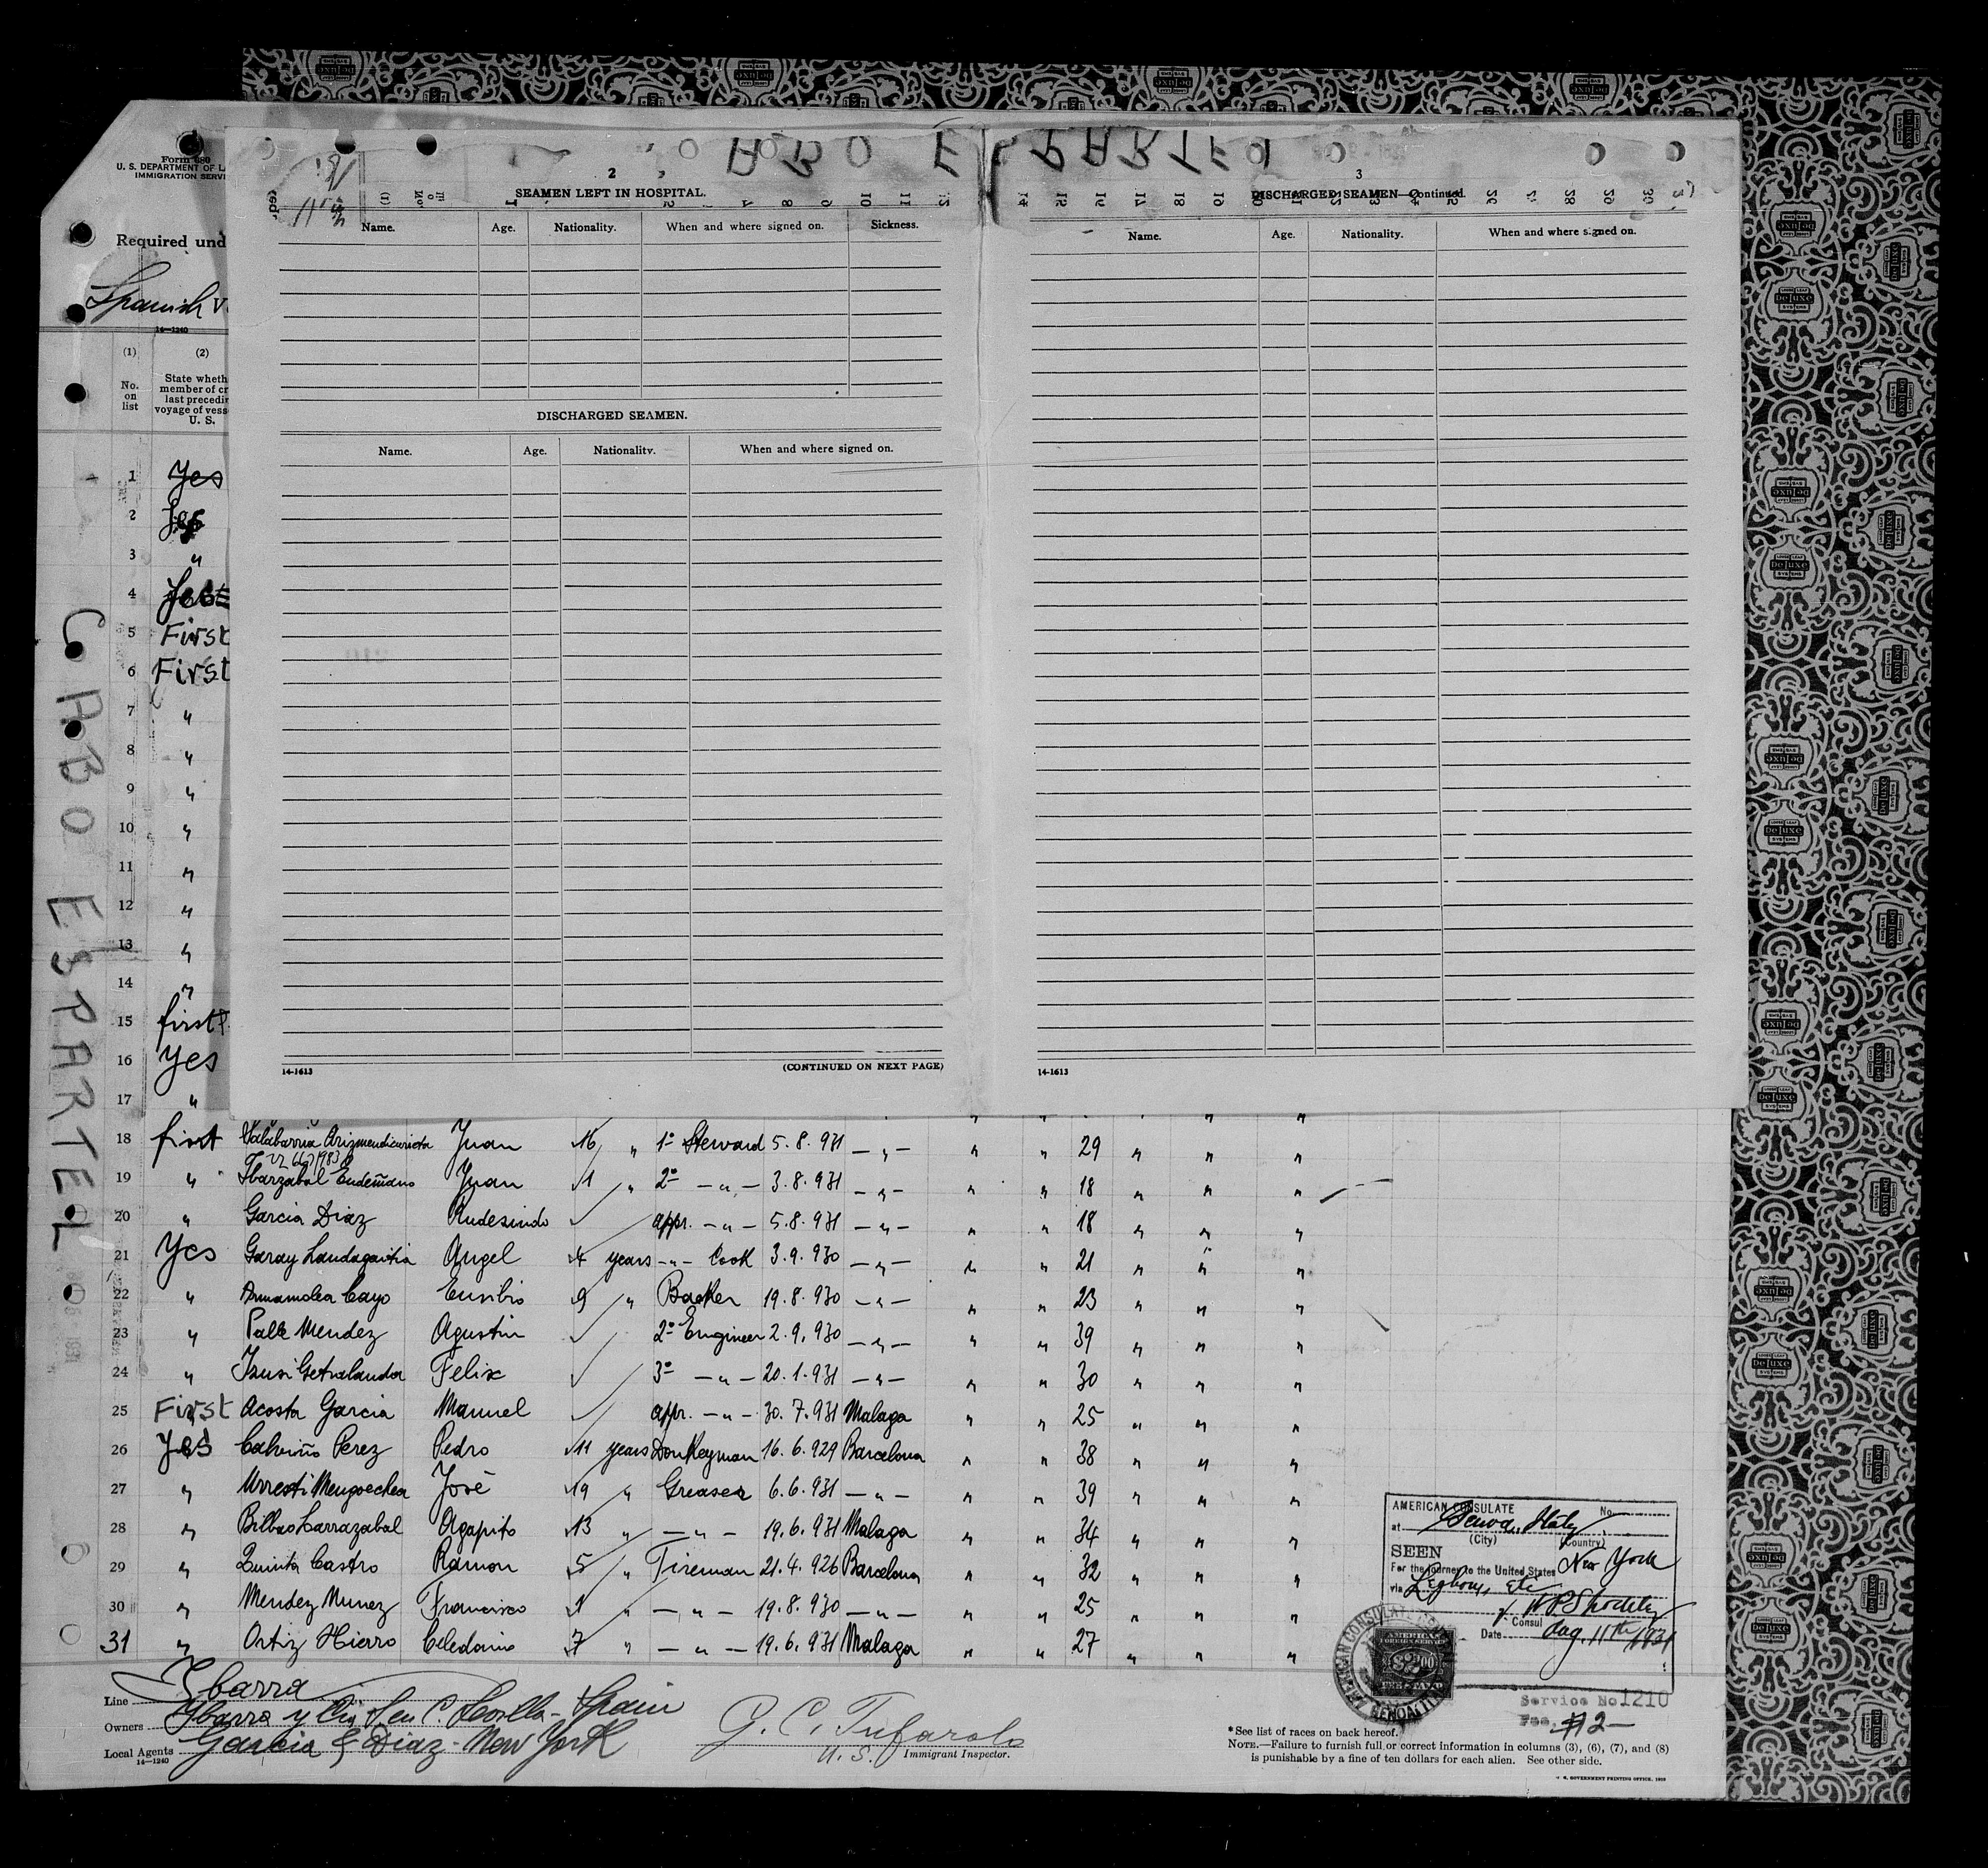 Form 680
U. S. DEPARTMENT OF
IMMIGRATION SERVI
Required und
Spanish
14—1240
(1) (2)
No. on list
State wheth
member of cr
last precedin
voyage of vess
U. S.
CABO ESPARTEL
2
SEAMEN LEFT IN HOSPITAL.
Name. Age. Nationality. When and where signed on. Sickness.
DISCHARGED SEAMEN.
Name. Age. Nationality. When and where signed on.
14-1613 (CONTINUED ON NEXT PAGE)
3
DISCHARGED SEAMEN—Continued.
Name. Age. Nationality. When and where signed on.
14-1613
1 Yes
2 Yes
3 "
4 Yes
5 First
6 First
7 "
8 "
9 "
10 "
11 "
12 "
13 "
14 "
15 first
16 Yes
17 "
18 first Juan 16 " 1º Steward 5.8.931 — " — " " 29 " " "
19 " Juan 1 " 2º — " — 3.8.931 — " — " " 18 " " "
20 " Garcia Diaz Rudesindo appr. — " — 5.8.931 — " — " " 18 " " "
21 Yes Garay Landagaitia Angel 4 years — " — Cook 3.9.930 — " — " " 21 " " "
22 " Cayo Eusibio 9 " Backer 19.8.930 — " — " " 23 " " "
23 " Mendez Agustin 2º Engineer 2.9.930 — " — " " 39 " " "
24 " Felix 3º — " — 20.1.931 — " — " " 30 " " "
25 First Acosta Garcia Manuel appr. — " — 30.7.931 Malaga " " 25 " " "
26 Yes Calviño Perez Pedro 11 years Donkeyman 16.6.929 Barcelona " " 38 " " "
27 " Urresti Mengoechea José 19 " Greaser 6.6.931 — " — " " 39 " " "
28 " Bilbao Larrazabal Agapito 13 " — " — 19.6.931 Malaga " " 34 " " "
29 " Quinta Castro Ramon 5 " Fireman 21.4.926 Barcelona " " 32 " " "
30 " Mendez Munez Francisco 1 " — " — 19.8.930 — " — " " 25 " " "
31 " Ortiz Hierro Celedonio 7 " — " — 19.6.931 Malaga " " 27 " " "
AMERICAN CONSULATE No.
at Genoa, Italy
(City) (Country)
SEEN
For the journey to the United States New York
via Leghorn, etc
Consul
Date Aug. 11th, 1931
AMERICAN
FOREIGN SERVICE
$2.00
Service No 1210
Fee $2—
Line Ybarra
Owners Ybarra y Cia S. en C. Sevilla - Spain
Local Agents Garcia & Diaz - New York
14—1240
G. C. Tufarolo
U. S. Immigrant Inspector.
*See list of races on back hereof.
NOTE.—Failure to furnish full or correct information in columns (3), (6), (7), and (8)
is punishable by a fine of ten dollars for each alien. See other side.
U. S. GOVERNMENT PRINTING OFFICE
LOOSE LEAF
DeLuxe
SYSTEMS